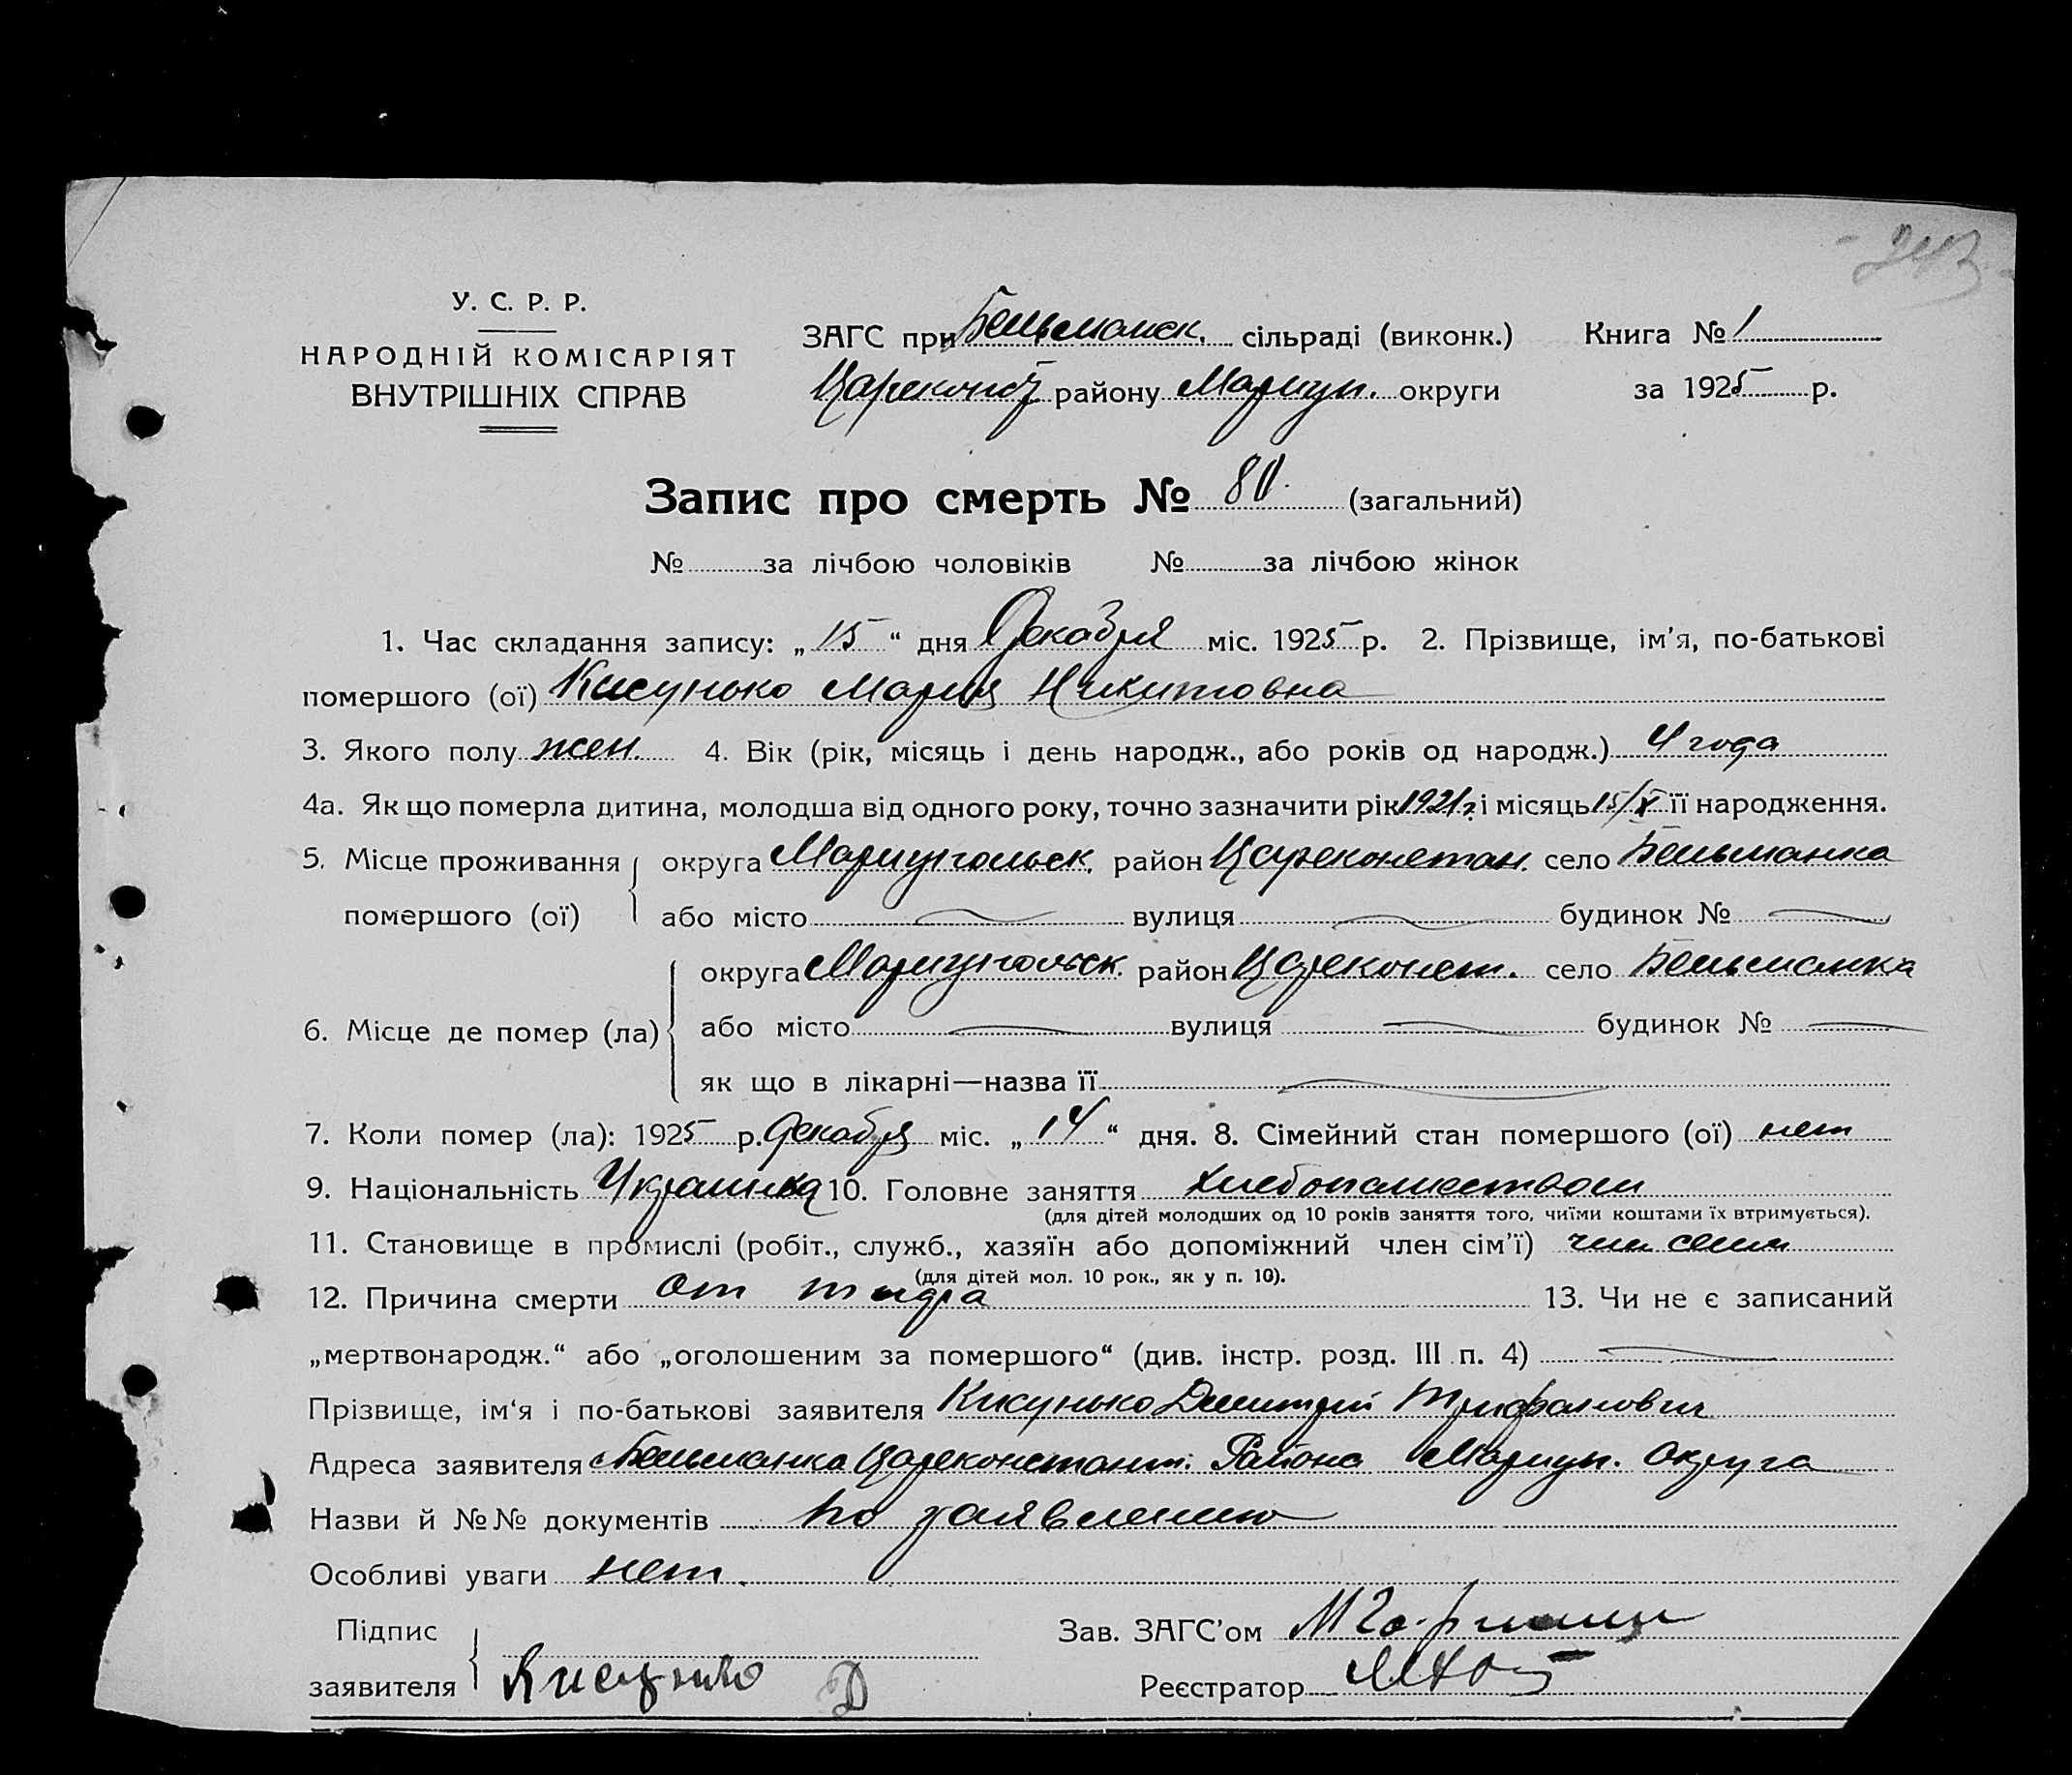 У. С. Р. Р.
НАРОДНІЙ КОМІСАРІЯТ
ВНУТРІШНІХ СПРАВ
ЗАГС при Бельманск. сільраді (виконк.) Книга № 1
Цареконст району Мариуп. округи за 1925 р.
Запис про смерть № 80 (загальний)
№ за лічбою чоловіків № за лічбою жінок
1. Час складання запису: „15“ дня Декабря міс. 1925 р. 2. Прізвище, ім'я, по-батькові
помершого (ої) Кисунько Мария Никитовна
3. Якого полу жен. 4. Вік (рік, місяць і день народж., або років од народж.) 4 года
4а. Як що померла дитина, молодша від одного року, точно зазначити рік 1921 г. і місяць 15/X її народження.
5. Місце проживання округа Мариупольск. район Цареконстан. село Бельманка
помершого (ої) або місто вулиця будинок №
округа Мариупольск. район Цареконст. село Бельманка
6. Місце де помер (ла) або місто вулиця будинок №
як що в лікарні—назва її
7. Коли помер (ла): 1925 р. Декабря міс. „14“ дня. 8. Сімейний стан помершого (ої) нет
9. Національність Украинка 10. Головне заняття хлебопашеством
(для дітей молодших од 10 років заняття того, чиїми коштами їх втримується).
11. Становище в промислі (робіт., служб., хазяїн або допоміжний член сім'ї) член семьи
(для дітей мол. 10 рок., як у п. 10).
12. Причина смерти от 13. Чи не є записаний
„мертвонародж.“ або „оголошеним за помершого“ (див. інстр. розд. III п. 4)
Прізвище, ім'я і по-батькові заявителя Кисунько Дмитрий Трифанович
Адреса заявителя с Бельманка Цареконстант. Района Мариуп. Округа
Назви й №№ документів по заявлению
Особливі уваги нет.
Підпис
заявителя Кисунько Д
Зав. ЗАГС'ом
Реєстратор